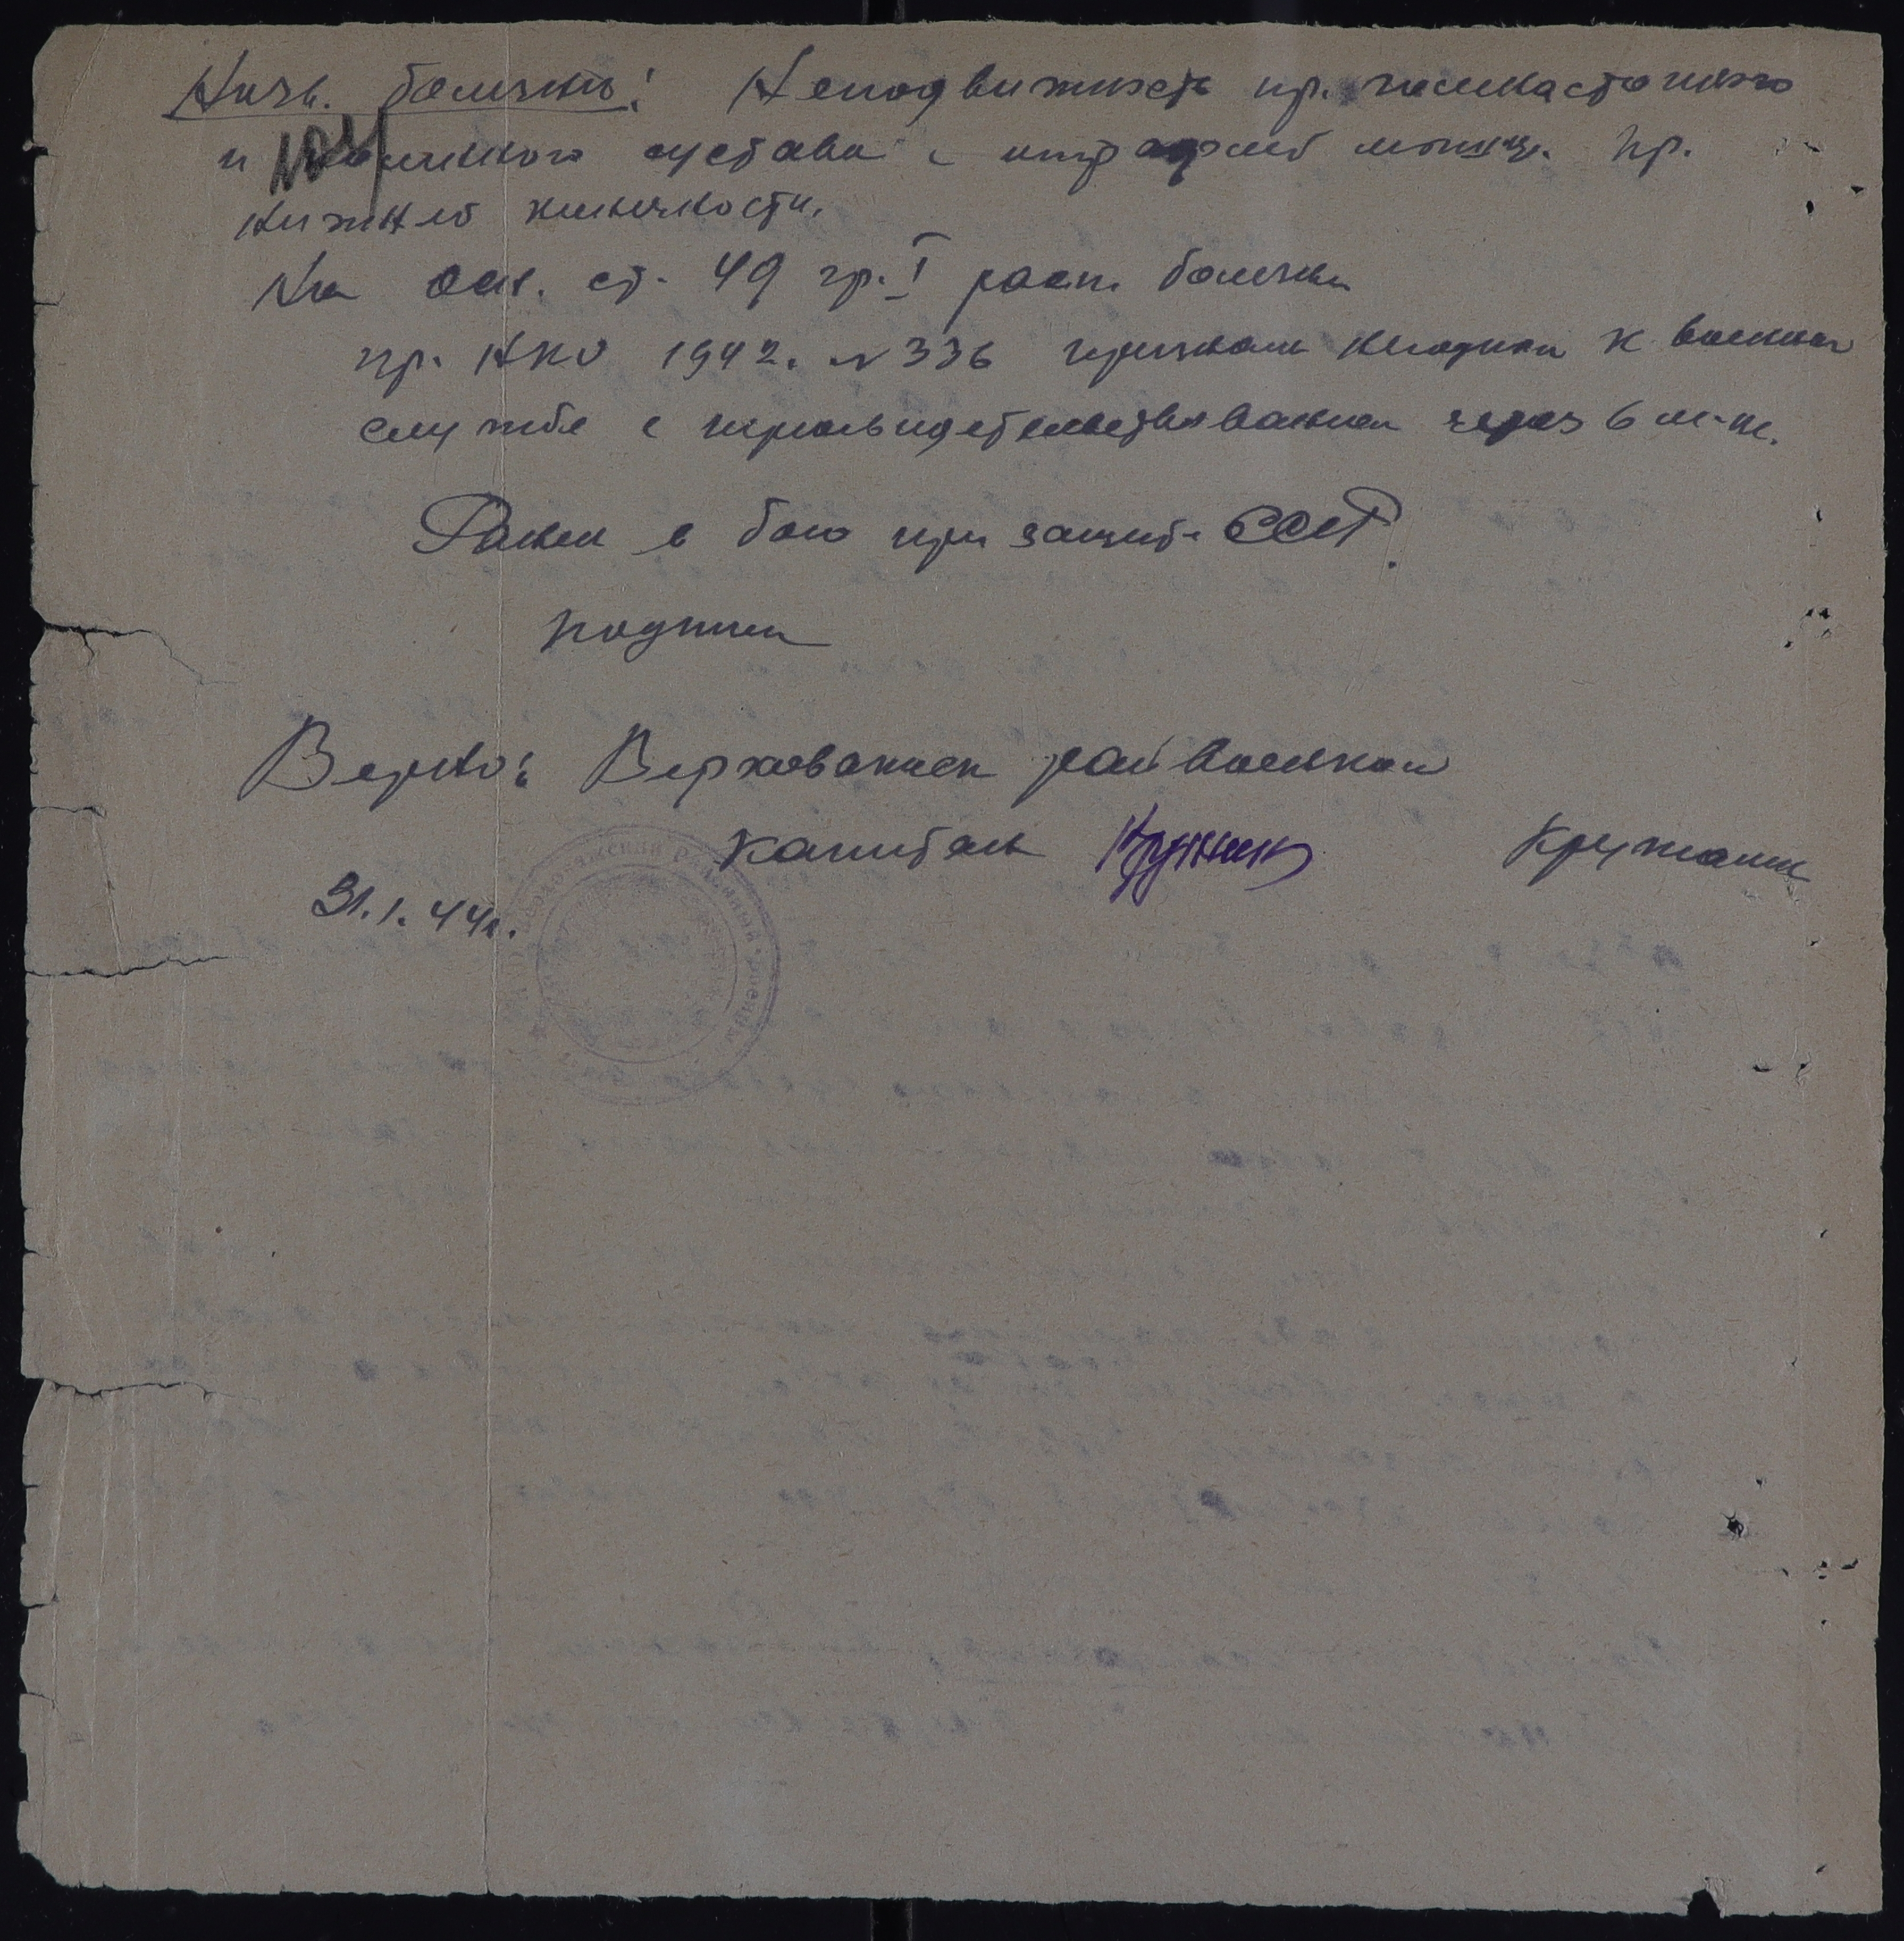 Назв. болезни: Неподвижность пр. голеностопного
и коленного сустава с атрофией мышц. пр.
нижней конечности.
На осн. ст. 49 гр. I расп. болезни
пр. НКО 1942. N 336 признан негодным к военной
службе с переосвидетельствованием через 6 м-ц.
Ранен в бою при защите СССР.
подписи
Верно: Верховажский райвоенком
капитан
31.1.44г.